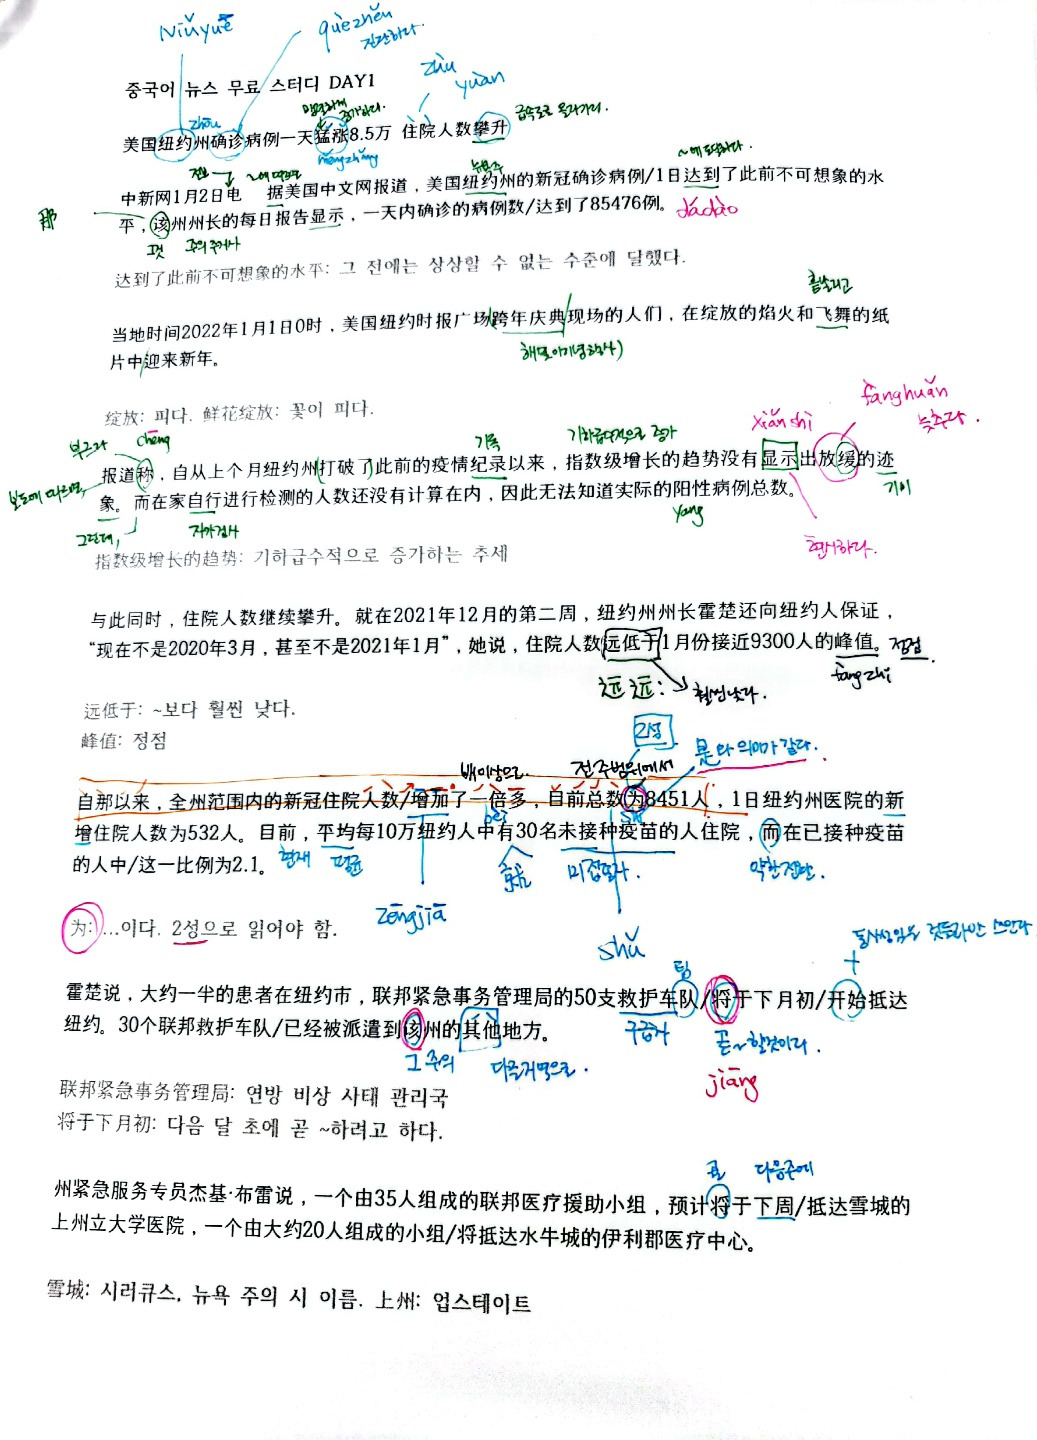 Niǔyuē
quèzhěn
진단하다.
zhù
yuàn
중국어 뉴스 무료 스터디 DAY1
증가하다.
급속도로 올라가다.
zhōu
美国纽约州确诊病例一天猛涨8.5万 住院人数攀升
měngzhǎng
~에 도달하다.
뉴욕주
中新网1月2日电 据美国中文网报道，美国纽约州的新冠确诊病例/1日达到了此前不可想象的水
那
平，该州州长的每日报告显示，一天内确诊的病例数/达到了85476例。
dádào
그것 주의 주지사
达到了此前不可想象的水平: 그 전에는 상상할 수 없는 수준에 달했다.
흩날리고
当地时间2022年1月1日0时，美国纽约时报广场跨年庆典现场的人们，在绽放的焰火和飞舞的纸
片中迎来新年。
해넘이기념행사)
绽放: 피다. 鲜花绽放: 꽃이 피다.
fànghuǎn
늦추다.
xiǎnshì
부르다
chēng
기록
报道称，自从上个月纽约州打破了此前的疫情纪录以来，指数级增长的趋势没有显示出放缓的迹
보도에 따르면,
象。而在家自行进行检测的人数还没有计算在内，因此无法知道实际的阳性病例总数。
그런데,
자가검사
yáng
현시하다.
指数级增长的趋势: 기하급수적으로 증가하는 추세
与此同时，住院人数继续攀升。就在2021年12月的第二周，纽约州州长霍楚还向纽约人保证，
“现在不是2020年3月，甚至不是2021年1月”，她说，住院人数远低于1月份接近9300人的峰值。
정점.
fēngzhí
远远:
훨씬낮다.
远低于: ~보다 훨씬 낮다.
峰值: 정점
2성
是와 의미가 같다.
배이상으로
전주범위에서
自那以来，全州范围内的新冠住院人数/增加了一倍多，目前总数为8451人，1日纽约州医院的新
bèi
增住院人数为532人。目前，平均每10万纽约人中有30名未接种疫苗的人住院，而在已接种疫苗
的人中/这一比例为2.1。
현재 평균
미접종자.
약한전환.
zēngjiā
为: ...이다. 2성으로 읽어야 함.
shǔ
+
팀
霍楚说，大约一半的患者在纽约市，联邦紧急事务管理局的50支救护车队/将于下月初/开始抵达
纽约。30个联邦救护车队/已经被派遣到该州的其他地方。
구급차
곧~할것이다.
그 주의
다른지역으로.
jiāng
联邦紧急事务管理局: 연방 비상 사태 관리국
将于下月初: 다음 달 초에 곧 ~하려고 하다.
곧 다음주에
州紧急服务专员杰基·布雷说，一个由35人组成的联邦医疗援助小组，预计将于下周/抵达雪城的
上州立大学医院，一个由大约20人组成的小组/将抵达水牛城的伊利郡医疗中心。
雪城: 시러큐스, 뉴욕 주의 시 이름. 上州: 업스테이트